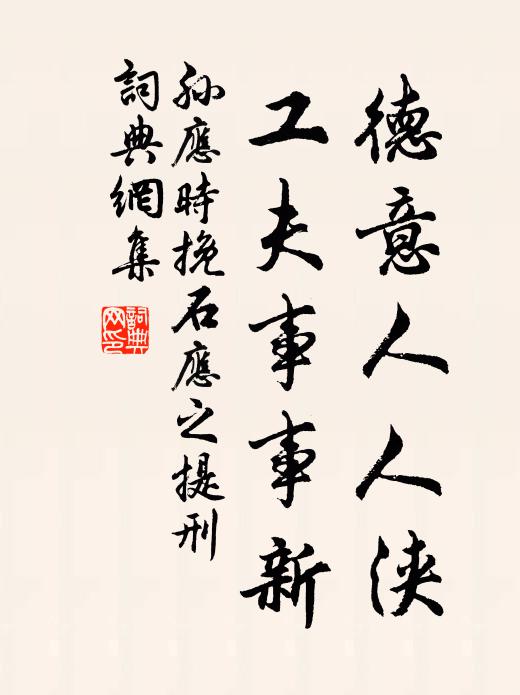 德意人人浹
工夫事事新
孫應時挽石應之提刑
詞典網集
詞典網印